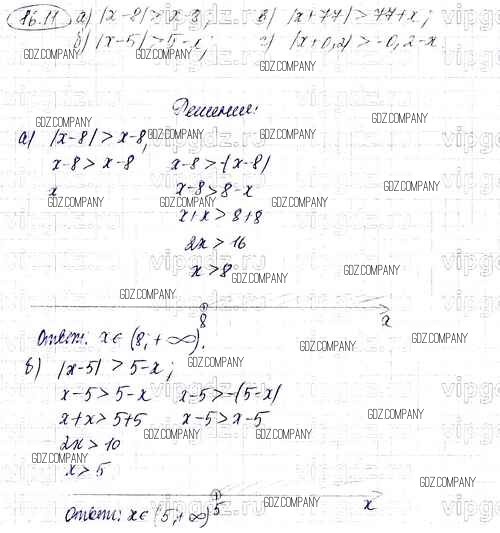 16.11 а) |x-8|>x-8; в) |x+77|>77+x;
б) |x-5|>5-x; г) |x+0,2|>-0,2-x.
GDZ.COMPANY GDZ.COMPANY GDZ.COMPANY
GDZ.COMPANY GDZ.COMPANY
Решение:
а) |x-8|>x-8, GDZ.COMPANY GDZ.COMPANY
x-8>x-8 x-8>-(x-8)
x x-8>8-x
GDZ.COMPANY GDZ.COMPANY GDZ.COMPANY
x+x>8+8
2x>16
x>8 GDZ.COMPANY GDZ.COMPANY
GDZ.COMPANY
8 x
Ответ: x∈(8,+∞).
GDZ.COMPANY GDZ.COMPANY
б) |x-5|>5-x; GDZ.COMPANY
x-5>5-x x-5>-(5-x)
GDZ.COMPANY
x+x>5+5 x-5>x-5
2x>10 GDZ.COMPANY GDZ.COMPANY GDZ.COMPANY
x>5
GDZ.COMPANY
5 x
GDZ.COMPANY
Ответ: x∈(5,+∞)
GDZ.COMPANY